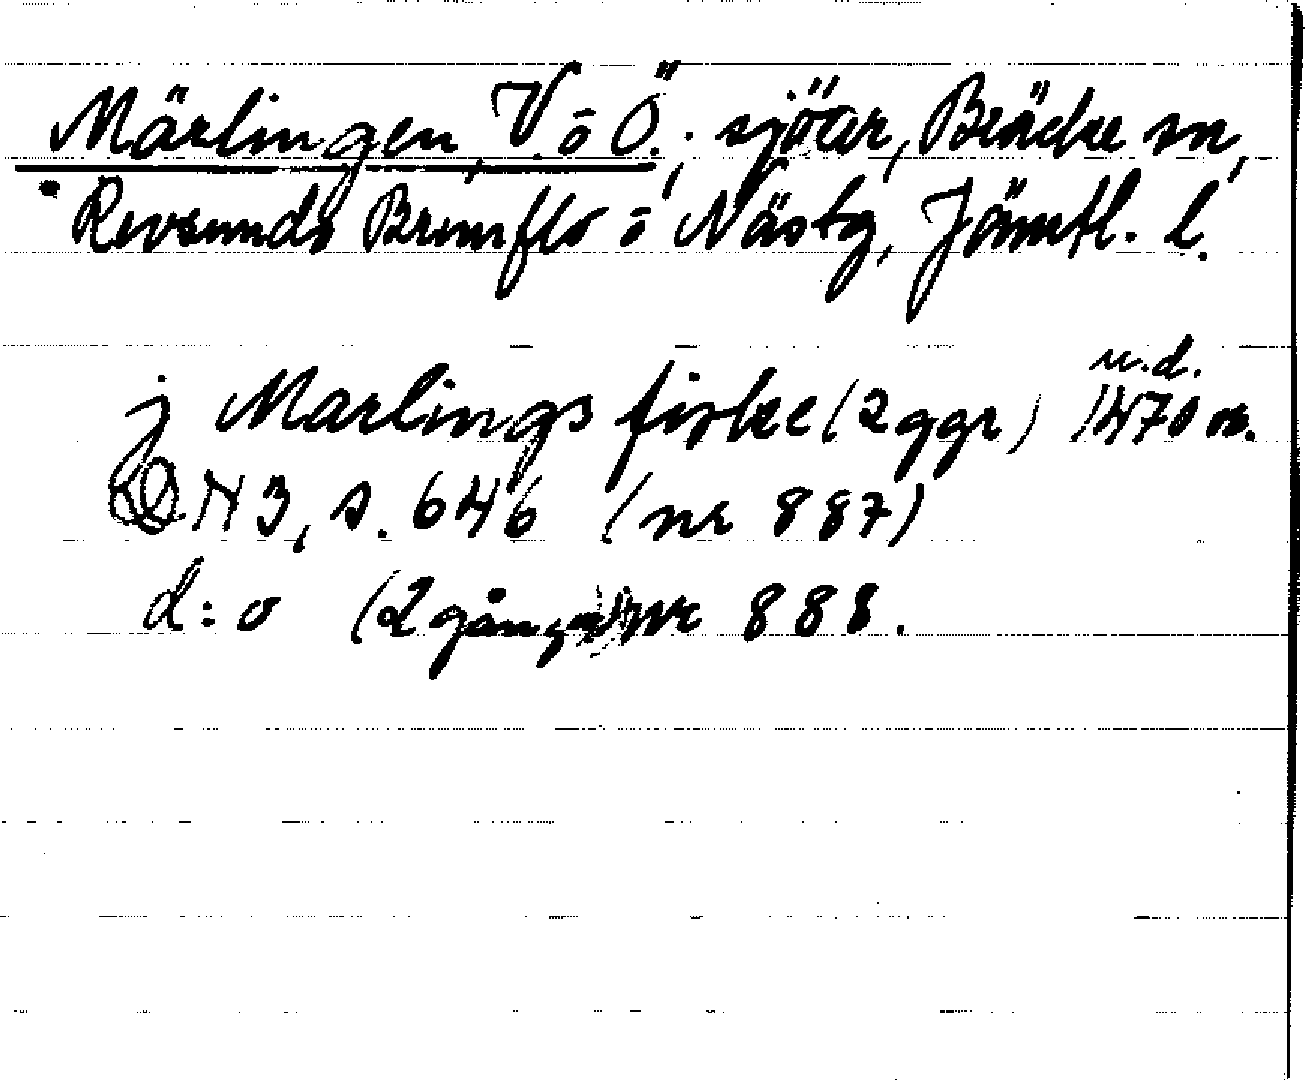 Märlingen, V. o Ö.; sjöar, Bräcke sn,
Revsunds Brunflo o Näs tg, Jämtl. l.
j Marlings fiske (2 ggr) u.d. 1470
DN 3, s. 646 (nr 887)
d:o (2 gånger) nr 888.